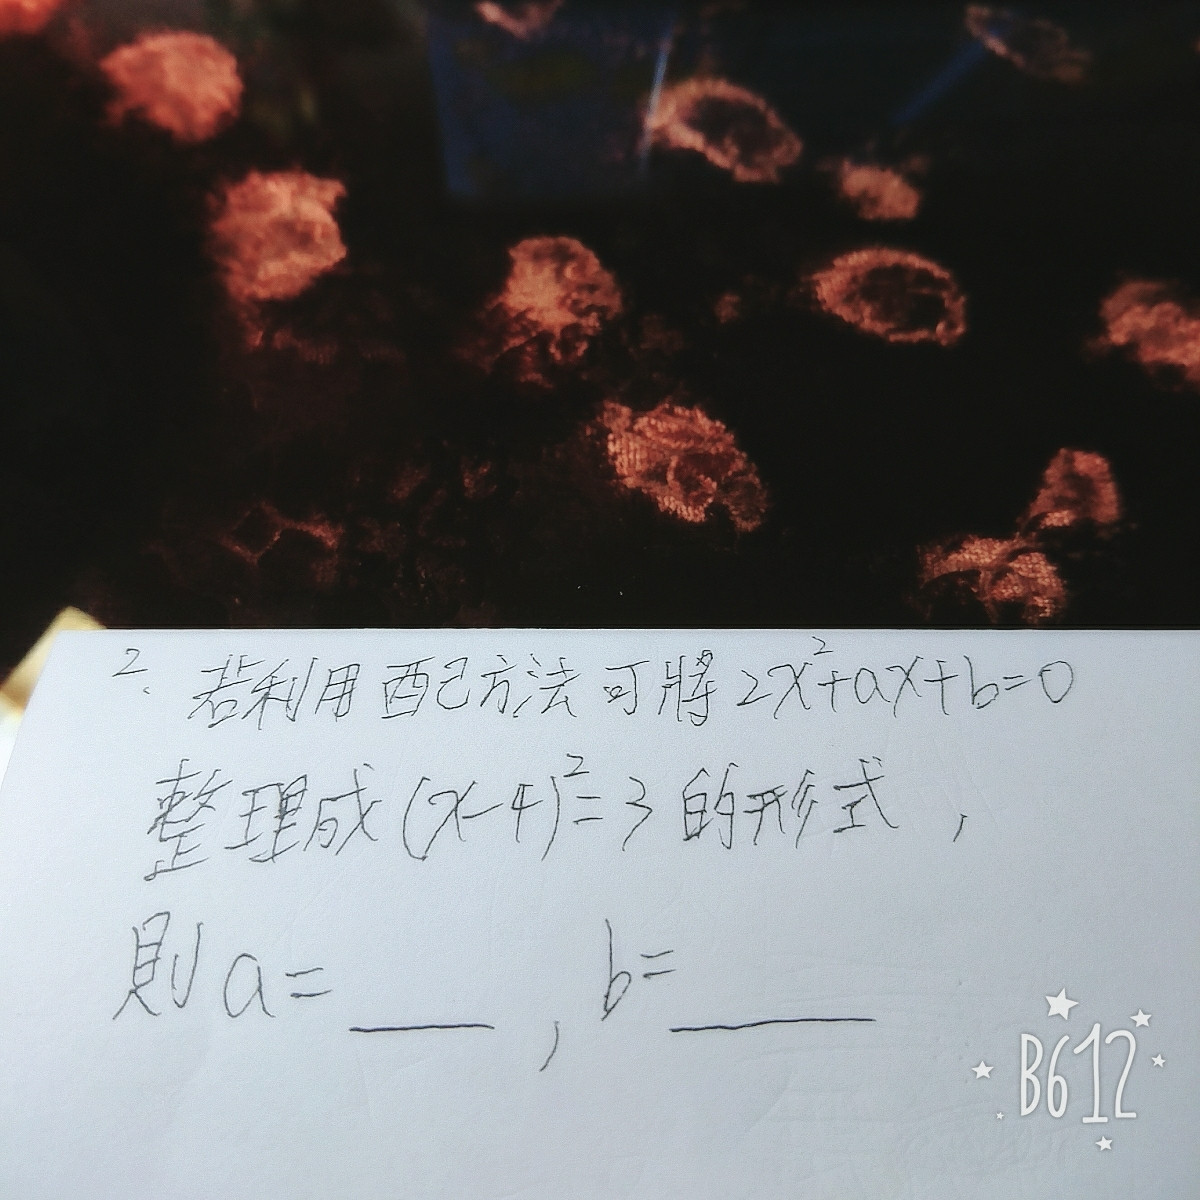 2. 若利用配方法可將2x²+ax+b=0
整理成(x-4)²=3的形式，
則a=____，b=____
B612